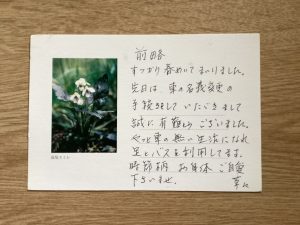 前略
すっかり春めいてまいりました。
先日は 車の名義変更の
手続きをして いただきまして
誠に有難う ございました。
やっと車の無い生活になれ
足とバスを利用してます。
時節柄 お身体 ご自愛
下さいませ。 草々